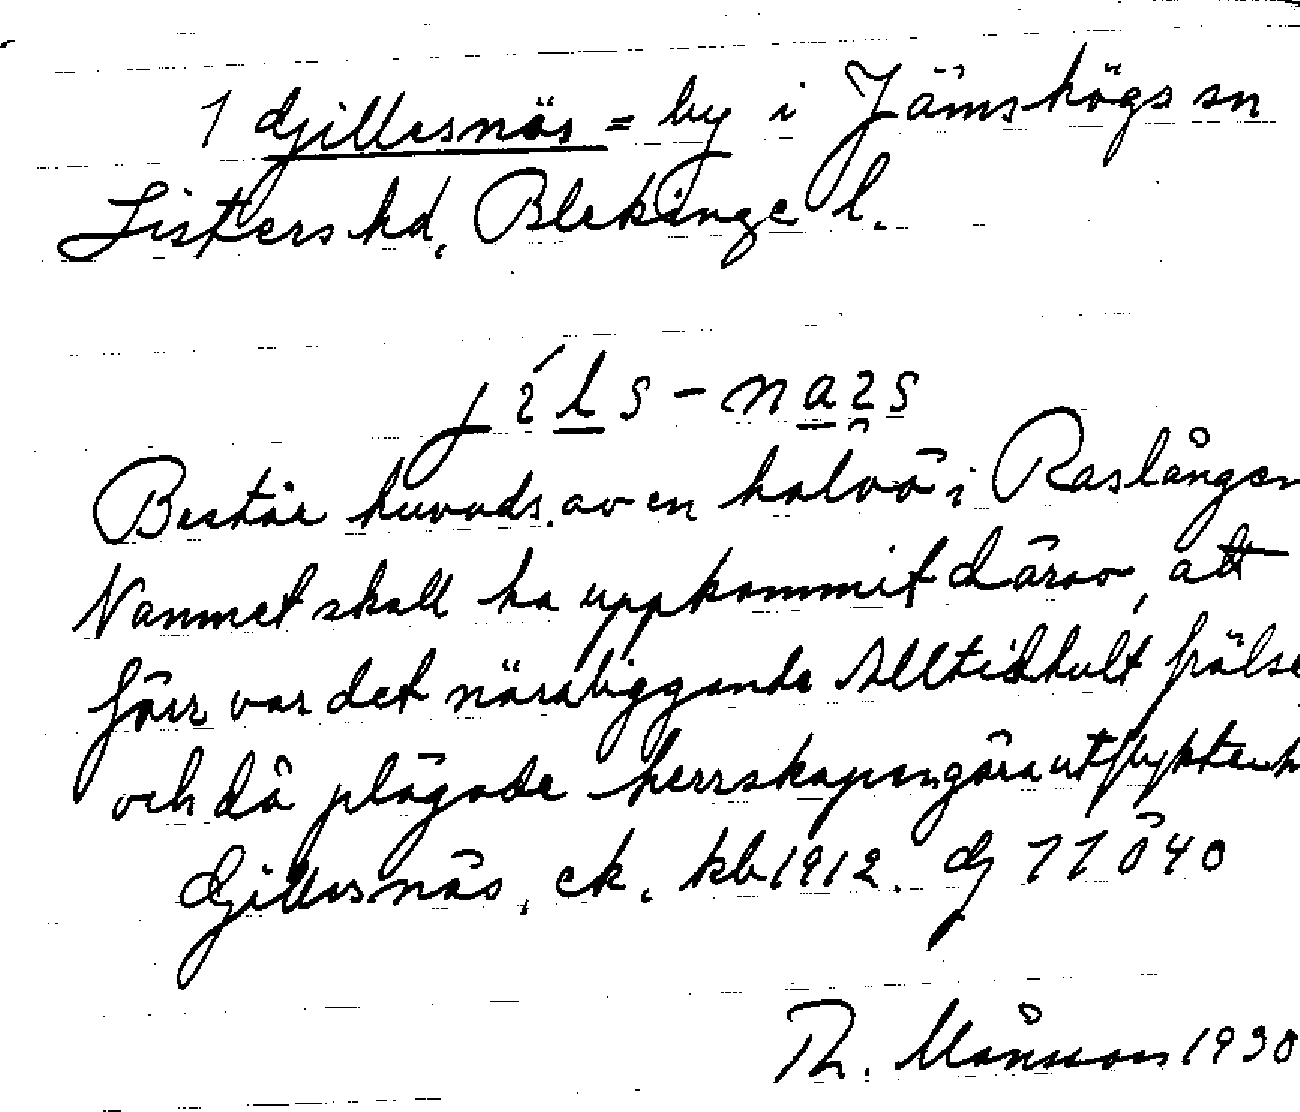 1 Gillesnäs = by i Jämshögs sn
Listers hd, Blekinge l.
jíls-nais
Består huvuds. av en halvö i Raslången
Namnet skall ha uppkommit därav, att
förr var det närabliggande Alltidhult frälse
och då plägade herrskapen göra utflykter
Gillesnäs, ek. kb 1912. G 11 Ö 40
Th. Månsson 1930